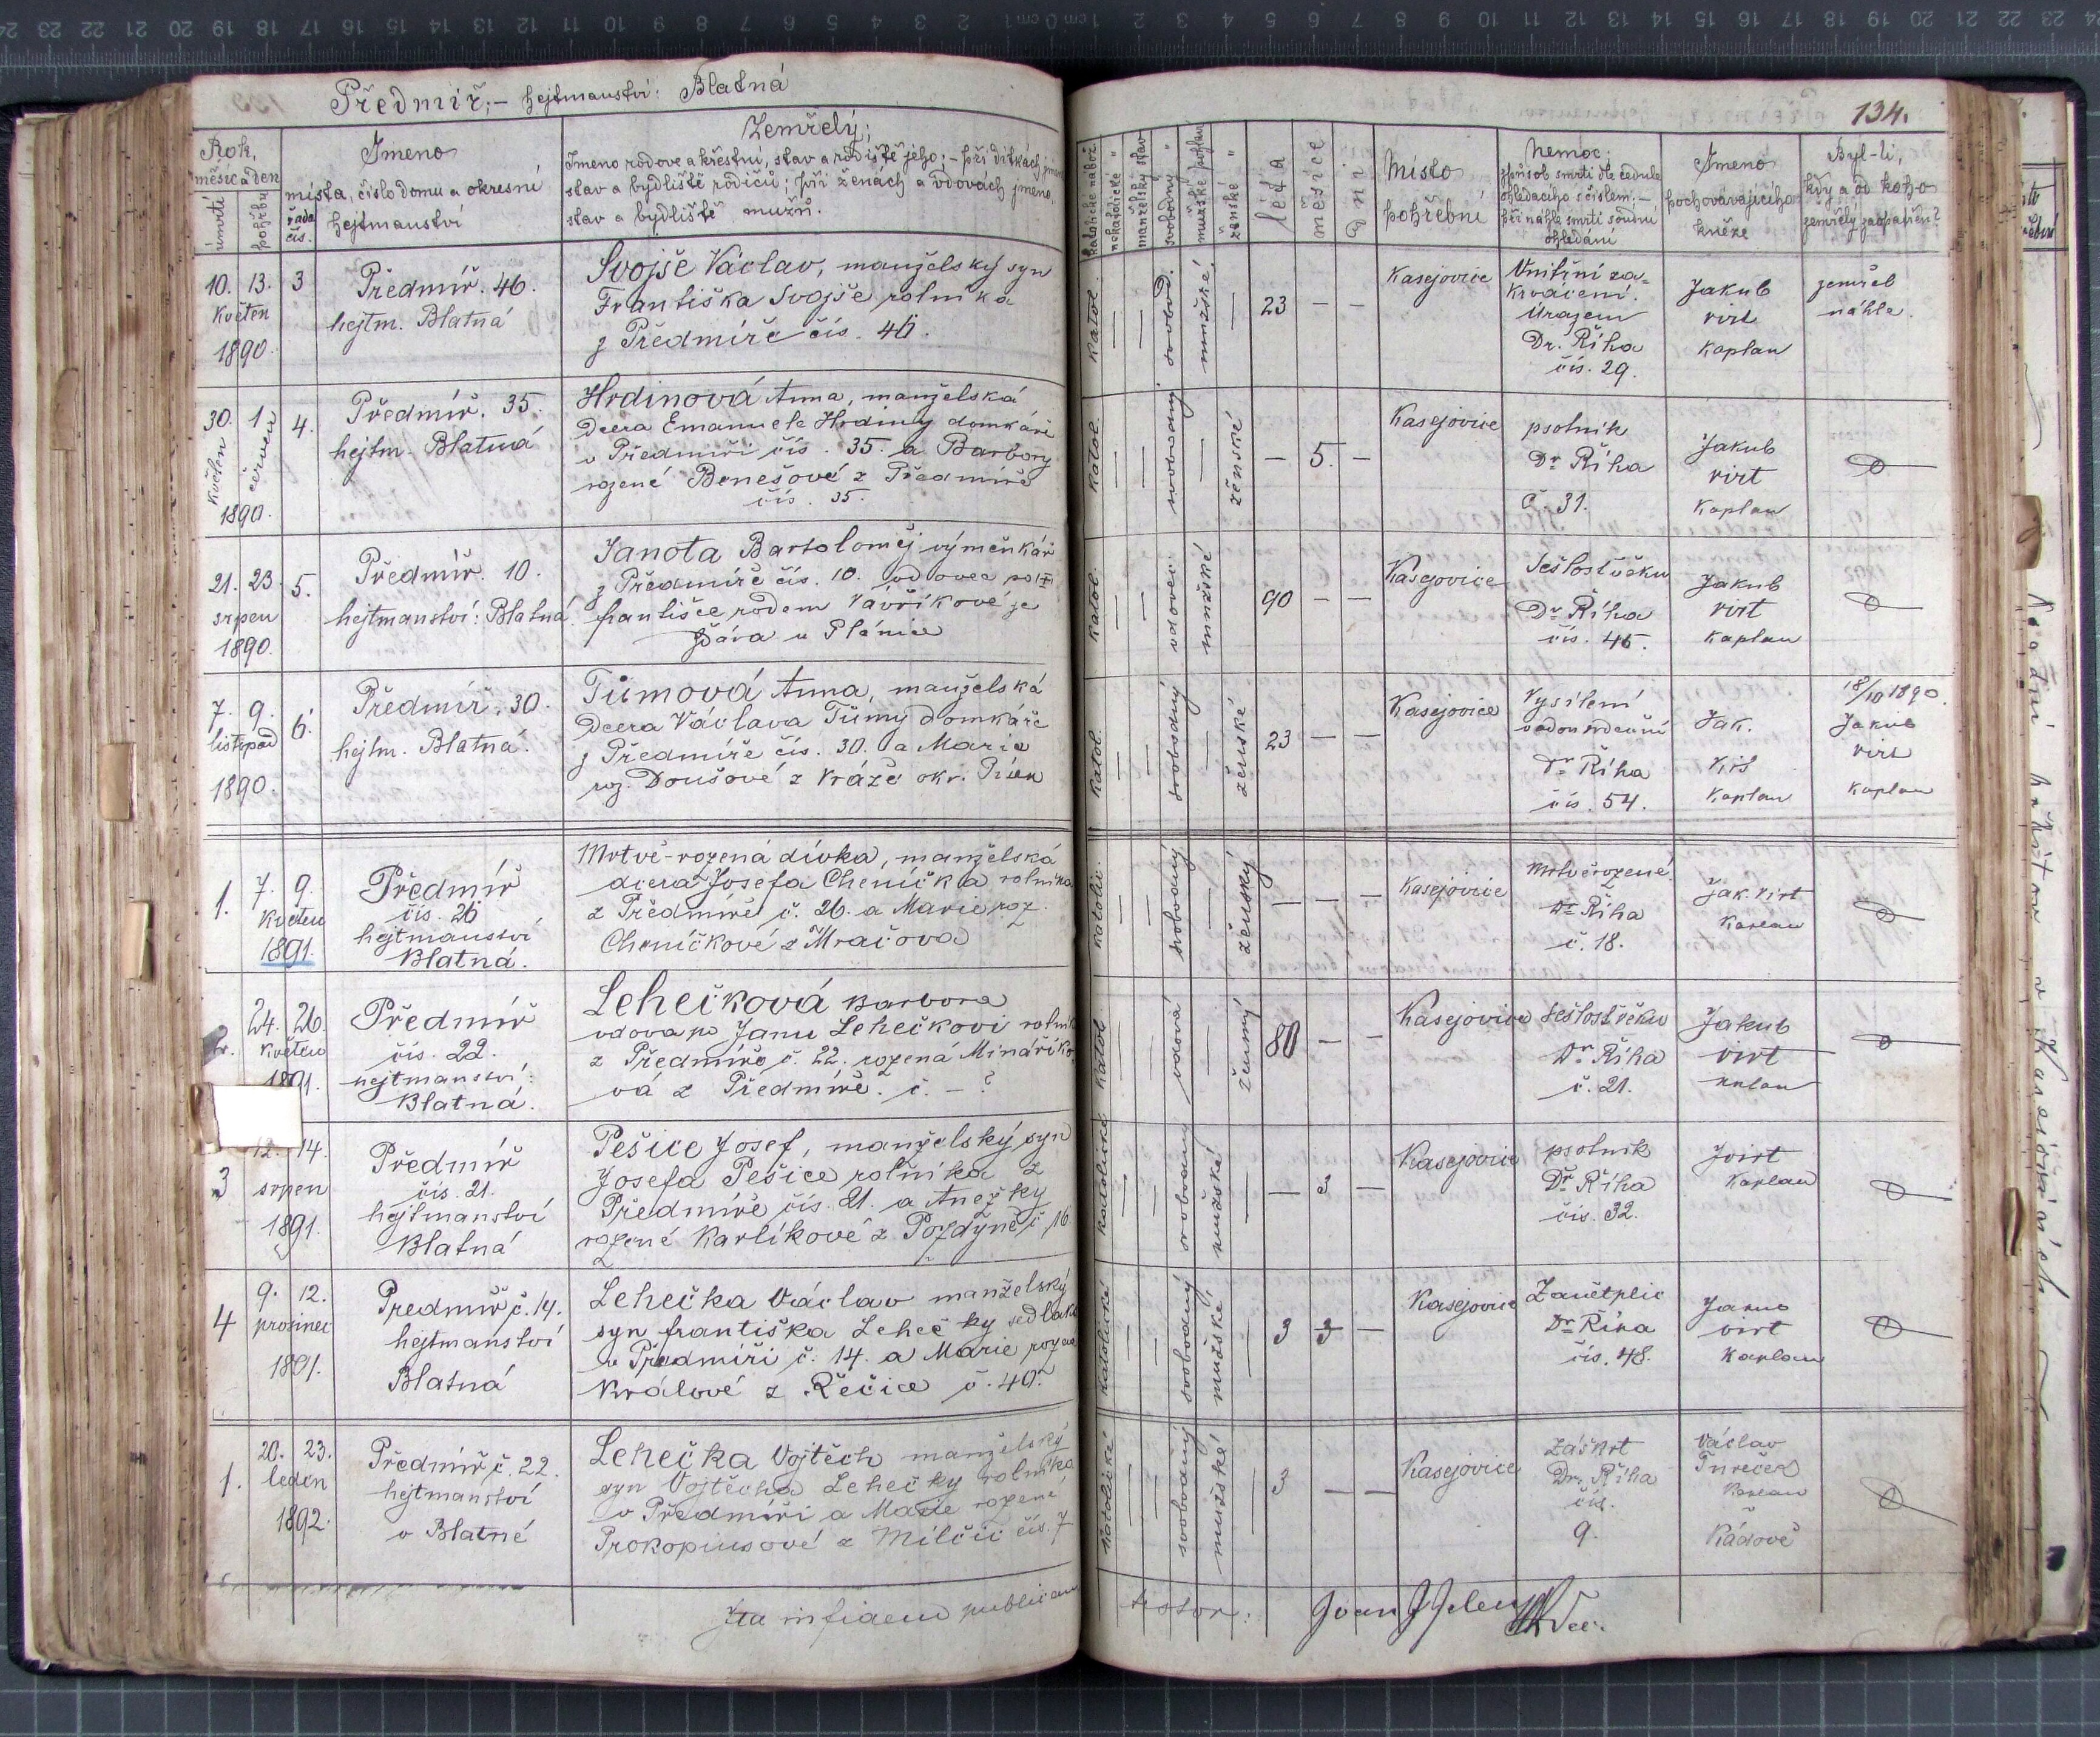 Předmíř; – hejtmanství: Blatná
134.
Rok,
měsíc a den
úmrtí
pohřbu
řada
čís.
Jmeno
místa, číslo domu a okresní
hejtmanství
Zemřelý;
Jmeno rodové a křestní, stav a rodiště jeho; – při dítkách jmeno
stav a bydliště rodičů; při ženách a vdovách jmeno,
stav a bydliště mužů.
katolické nábož.
nekatolické "
manželský stav
svobodný "
mužské pohlaví
ženské "
léta
měsíce
dni
Místo
pohřební
Nemoc:
způsob smrti dle cedule
ohledacího s číslem; –
při náhlé smrti soudní
ohledání
Jmeno
pochovávajícího
kněze
Byl-li,
kdy a od koho
zemřelý zaopatřen?
10. 13. 3
květen
1890.
Předmíř. 46.
hejtm. Blatná
Svojše Václav, manželský syn
Františka Svojše rolníka
z Předmíře čís. 46.
katol. — — svobod. mužské. — 23 — —
Kasejovice
Vnitřní za-
krvácení.
Úrazem
Dr. Říha
čís. 29.
Jakub
Virt
kaplan
zemřel
náhle.
30. 1 4.
květen červen
1890.
Předmíř. 35.
hejtm. Blatná
Hrdinová Anna, manželská
dcera Emanuele Hrdiny domkáře
v Předmíři čís. 35. a Barbory
rozené Benešové z Předmíře
čís. 35.
katol. — — svobodný — ženské — 5. —
Kasejovice
psotník
Dr Říha
č. 31.
Jakub
Virt
kaplan
21. 23. 5.
srpen
1890.
Předmíř. 10.
hejtmanství: Blatná.
Janota Bartoloměj výměnkář
z Předmíře čís. 10. vdovec po
Františce rodem Vavříkové ze
Žďára u Plánice
katol. — — vdovec mužské 90 — —
Kasejovice
Sešlost věku
Dr Říha
čís. 45.
Jakub
Virt
kaplan
7. 9. 6.
listopad
1890.
Předmíř. 30.
hejtm. Blatná.
Tůmová Anna, manželská
dcera Václava Tůmy domkáře
z Předmíře čís. 30. a Marie
roz. Doušové z Kráže okr.
katol. — — svobodný — ženské 23 — —
Kasejovice
Vysílení
Dr Říha
čís. 54.
Jak.
Virt
kaplan
18/10 1890.
Jakub
Virt
kaplan
1. 7. 9.
květen
1891.
Předmíř
čís. 26
hejtmanství
Blatná.
Mrtvě-rozená dívka, manželská
dcera Josefa Cheníčka rolníka
z Předmíře č. 26. a Marie roz.
Cheníčkové z Mračova
katolic. — — svobodný — ženský — — —
Kasejovice
Mrtvěrozené.
Dr Říha
č. 18.
Jak. Virt
kaplan
2. 24. 26.
květen
1891.
Předmíř
čís. 22.
hejtmanství:
Blatná.
Lehečková Barbora
vdova po Janu Lehečkovi rolník
z Předmíře č. 22. rozená Mináříko
vá z Předmíře. č. – ?
katol — — vdova — ženský 80 — —
Kasejovice
Sešlost věku
Dr Říha
č. 21.
Jakub
Virt
kplan
3 12. 14.
srpen
1891.
Předmíř
čís. 21.
hejtmanství
Blatná
Pešice Josef, manželský syn
Josefa Pešice rolníka z
Předmíře čís. 21. a Anežky
rozené Karlíkové z Pozdyně č. 16
katolické — — svobodný mužské — — 2 —
Kasejovice
psotník
Dr Říha
čís. 32.
J Virt
kaplan
4 9. 12.
prosinec
1891.
Předmíř č. 14.
hejtmanství
Blatná
Lehečka Václav manželský
syn Františka Lehečky sedláka
v Předmíři č. 14. a Marie rozené
Králové z Řečice č. 40.
katolické — — svobodný mužské — 3 3 —
Kasejovice
Zánět plic
Dr Říha
čís. 48.
Jakub
Virt
kaplan
1. 20. 23.
leden
1892.
Předmíř č. 22.
hejtmanství
v Blatné
Lehečka Vojtěch manželský
syn Vojtěcha Lehečky rolníka
v Předmíři a Marie rozené
Prokopiusové z Milčic čís. 7
katolické — — svobodný mužské — 3 — —
Kasejovice
Záškrt
Dr. Říha
čís.
9.
Václav
Tureček
kaplan
Kádově
Ita in fidem publicam
testor: